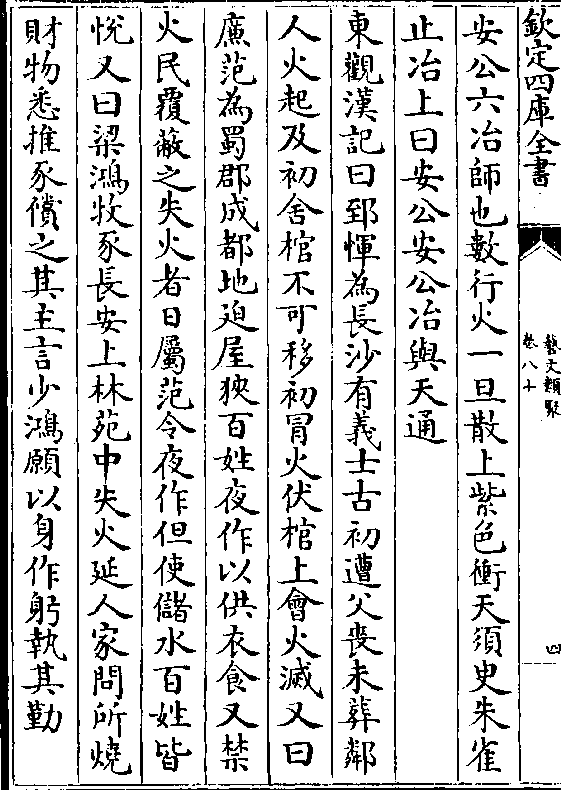 欽定四庫全書
藝文類聚
卷八十
四
安公六冶師也數行火一旦散上紫色衝天須臾朱雀
止冶上曰安公安公冶與天通
東觀漢記曰郅惲為長沙有義士古初遭父喪未葬鄰
人火起及初舍棺不可移初冒火伏棺上會火滅又曰
廉范為蜀郡成都地迫屋狹百姓夜作以供衣食又禁
火民覆蔽之失火者日屬范令夜作但使儲水百姓皆
悅又曰梁鴻牧豕長安上林苑中失火延人家問所燒
財物悉推豕償之其主言少鴻願以身作躬執其勤